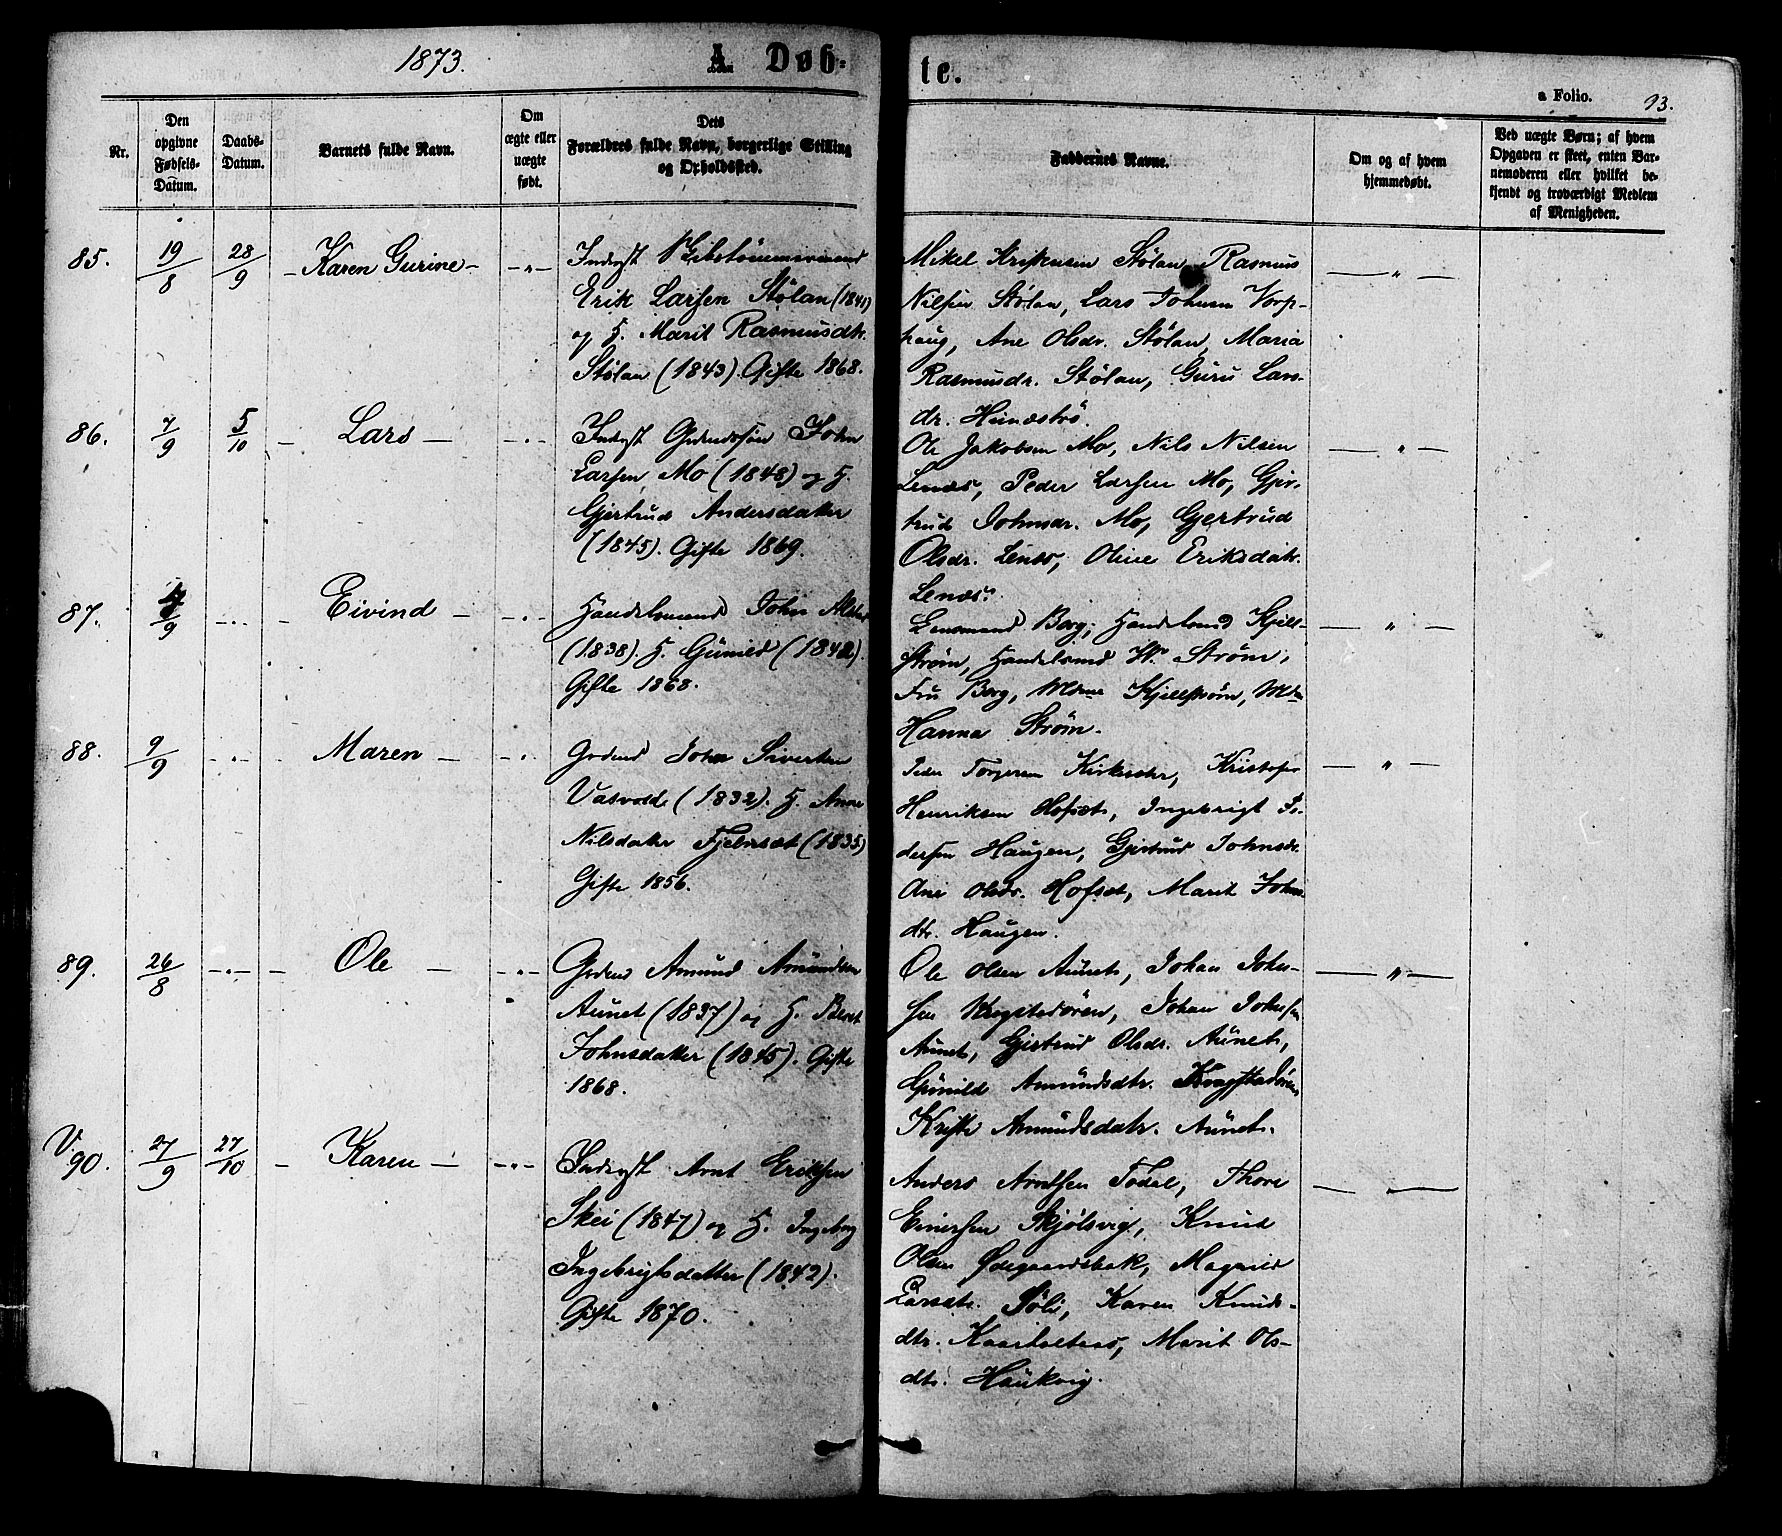 1873.
A. Døb-
te.
a Folio. 93.
Nr.
Den opgivne Fødsels-Datum.
Daabs-Datum.
Barnets fulde Navn.
Om ægte eller uægte født.
Dets Forældres fulde Navn, borgerlige Stilling og Opholdssted.
Faddernes Navne.
Om og af hvem hjemmedøbt.
Ved uægte Børn; af hvem Opgaven er skeet, enten Barnemoderen eller hvilket bekjendt og troværdigt Medlem af Menigheden.
85. 19/8 28/9 - Karen Gurine - - " -
Inderst
Erik Larsen Stølan (1841)
og H. Marit Rasmusdtr.
Stølan (1843). Gifte 1868.
Mikel Kristensen Stølan, Rasmus
Nilsen Stølan, Lars Johnsen Vorp-
haug, Ane Olsdr. Stølan, Maria
Rasmusdr. Stølan, Guru Lars-
dr. Hundstrø.
86. 7/9 5/10 - Lars - - " -
Inderst John
Larsen Mo (1848) og H.
Gjertrud Andersdatter
(1845). Gifte 1869.
Ole Jakobsen Mo, Nils Nilsen
Lenæs, Peder Larsen Mo, Gjer-
trud Johnsdr. Mo, Gjertrud
Olsdr. Lenæs, Oline Eriksdatr.
Lenæs.
87. /9 - " - - Eivind - - " -
Handelsmand John
(1838). H. Gunild (1842).
Gifte 1868.
Lensmand Borg, Handelsmd Kjell-
strøm, Handelsmd W. Strøm,
Fru Borg, Mdme Kjellstrøm, Mdm
Hanna Strøm.
88. 9/9 - " - - Maren - - " -
Grdmd John Sivertsen
(1832). H. Anne
Nilsdatter Fjelnset (1835)
Gifte 1856.
Peder Torgersen Kristofer
Henriksen Hofset, Ingebrigt Pe-
dersen Haugen, Gjertrud Johnsdr.
Ane Olsdr. Hofset, Marit Johns-
dtr. Haugen.
89. 26/8 - " - - Ole - - " -
Grdmd Amund Amundsen
Aunet (1837) og H. Beret
Johnsdatter (1845). Gifte
1868.
Ole Olsen Aunet, Johan John-
sen Krogstadøren, Johan Johnsen
Aunet, Gjertrud Olsdr. Aunet,
Gunild Amundsdtr. Krogstadøren
Kristi Amundsdatr. Aunet.
V 90. 27/9 27/10 - Karen - - " -
Inderst Arnt Eriksen
Skei (1847) og H. Ingeborg
Ingebrigtsdatter (1842).
Gifte 1870.
Anders Arntsen Todal, Thore
Einersen Skjølsvig, Knud
Olsen Ødegaardsbak, Magnild
Larsdtr. Sølie, Karen Knuds-
dtr. Marit Ols-
dtr. Haukvig.